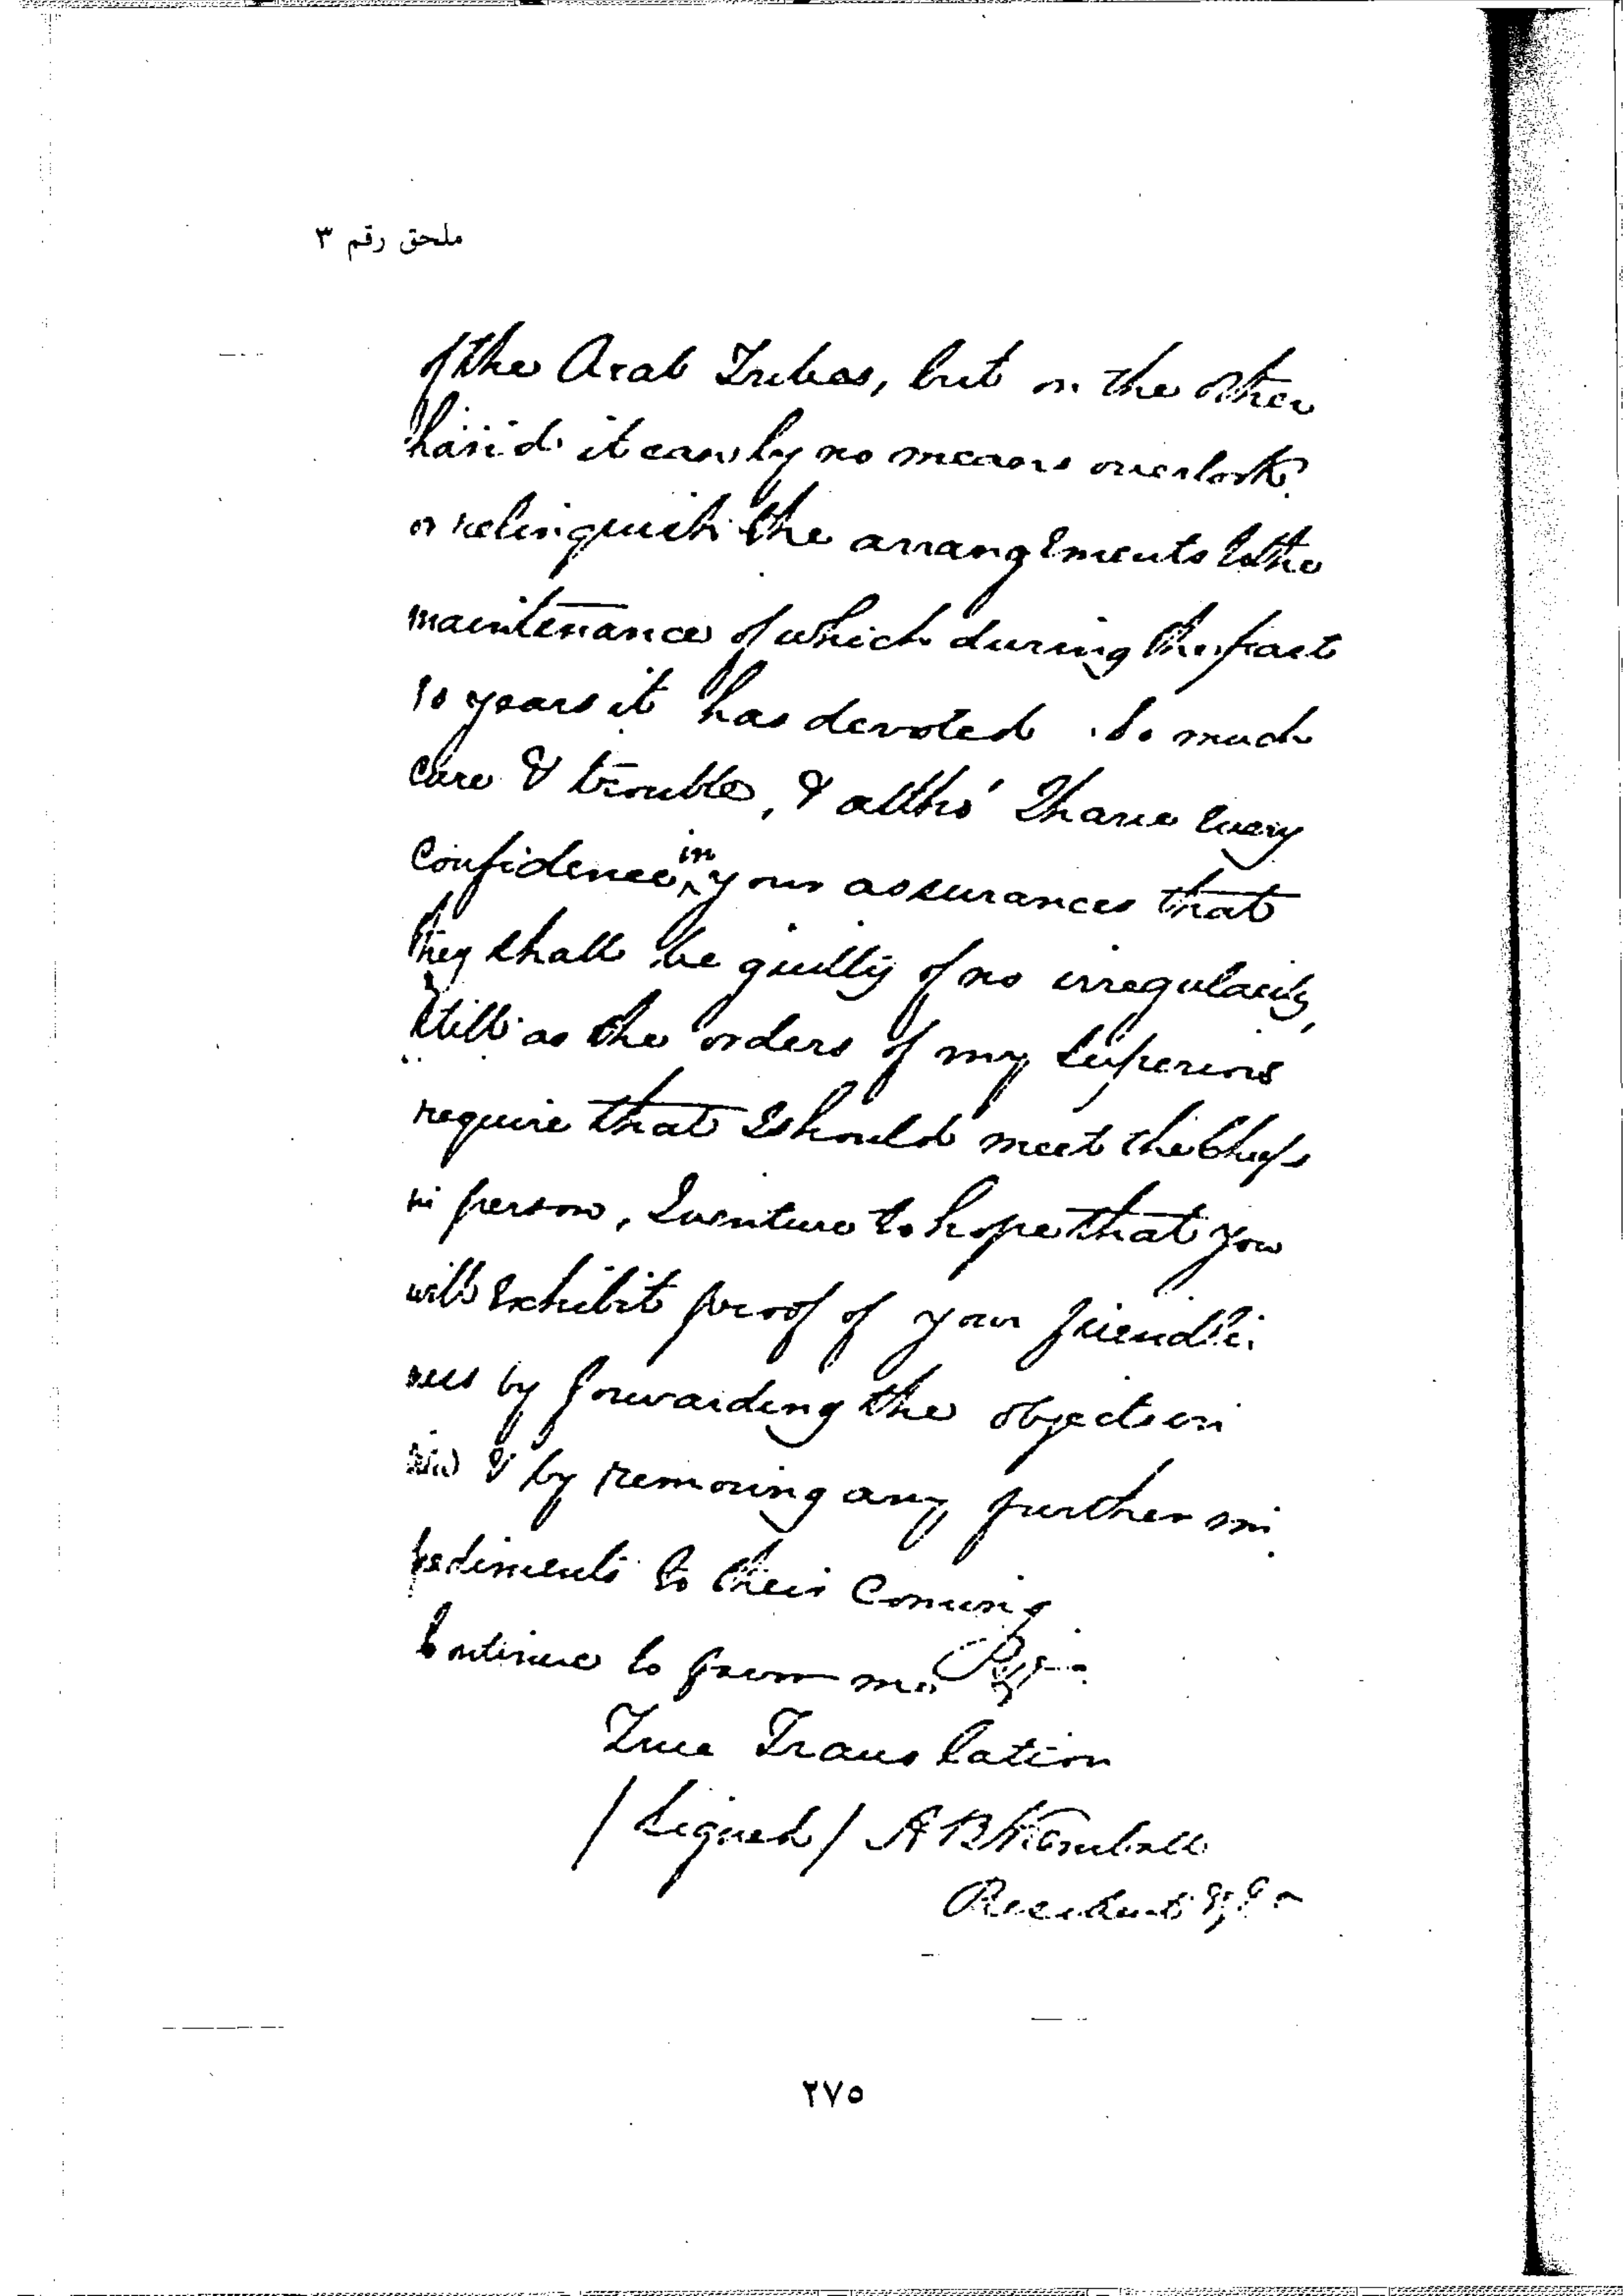 ملحق رقم ٣
of the Arab Tribes, but on the other
hand it can by no means overlook
or relinquish the arrangements to the
maintenance of which during the past
10 years it has devoted so much
care & trouble, & altho' I have every
confidence in your assurances that
they shall be guilty of no irregularity,
still as the orders of my superiors
require that I should meet the Chiefs
in person, I venture to hope that you
will exhibit proof of your friendli-
ness by forwarding the object in
& by removing any further im-
pediments to their coming
Continue to
True Translation
/Signed/ A B Kemball
Resident
٢٧٥